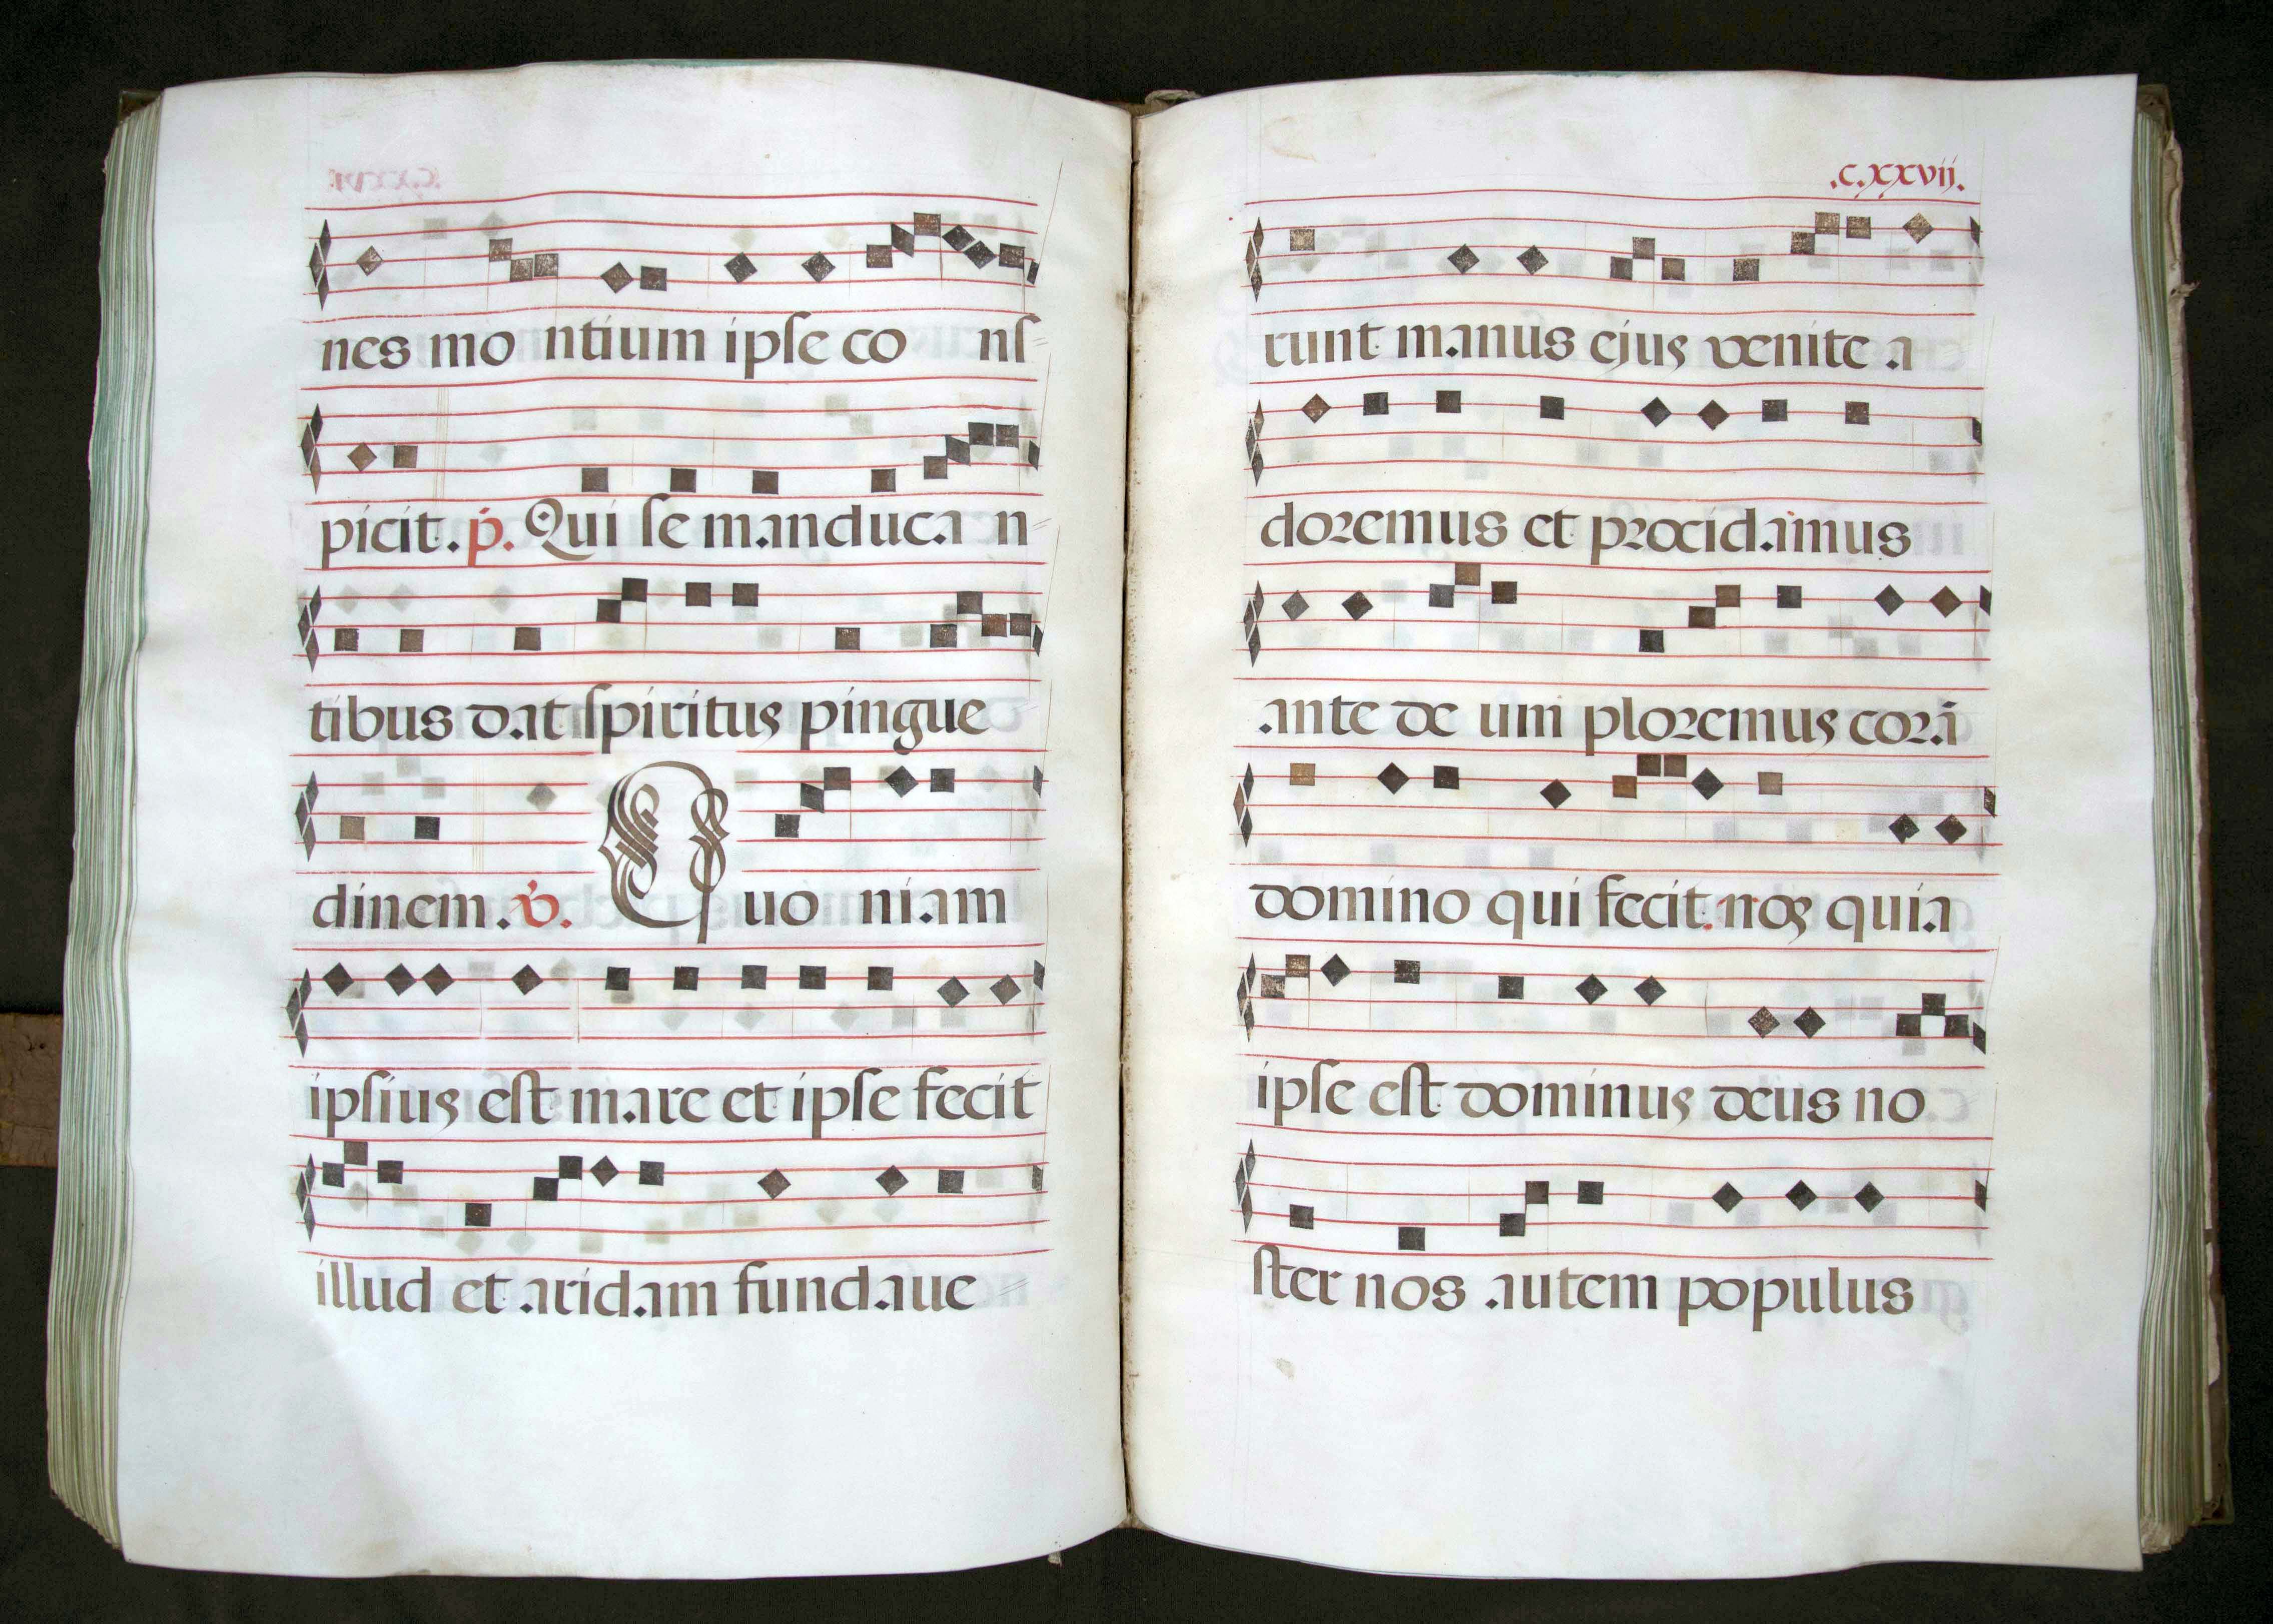 nes mo ntium ipſe co nſ
picit. p. Qui ſe manduca n
tibus dat ſpiritus pingue
dinem. v. Quo niam
ipſius eſt mare et ipſe fecit
illud et aridam fundaue
.c.xxvij.
runt manus ejus venite a
doremus et procidamus
ante de um ploremus corā
domino qui fecit nos quia
ipſe eſt dominus deus no
ſter nos autem populus